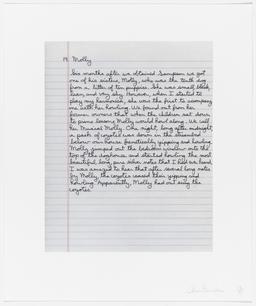 19. Molly
Six months after we obtained Sampson we got
one of his sisters, Molly, who was the tenth dog
from a litter of ten puppies. She was small, black,
lean, and very shy. However, when I started to
play my harmonica, she was the first to accompany
me with her howling. We found out from her
former owners that when the children sat down
to piano lessons Molly would howl along. We call
her Musical Molly. One night, long after midnight,
a pack of coyotes was down in the streambed
below our house frenetically yipping and howling.
Molly jumped out the bedroom window onto the
top of the doghouse and started howling the most
beautiful, long, pure alto notes that I had ever heard.
I was amazed to hear that after several long notes
by Molly, the coyotes ceased their yipping and
howling. Apparently, Molly had out sung the
coyotes.